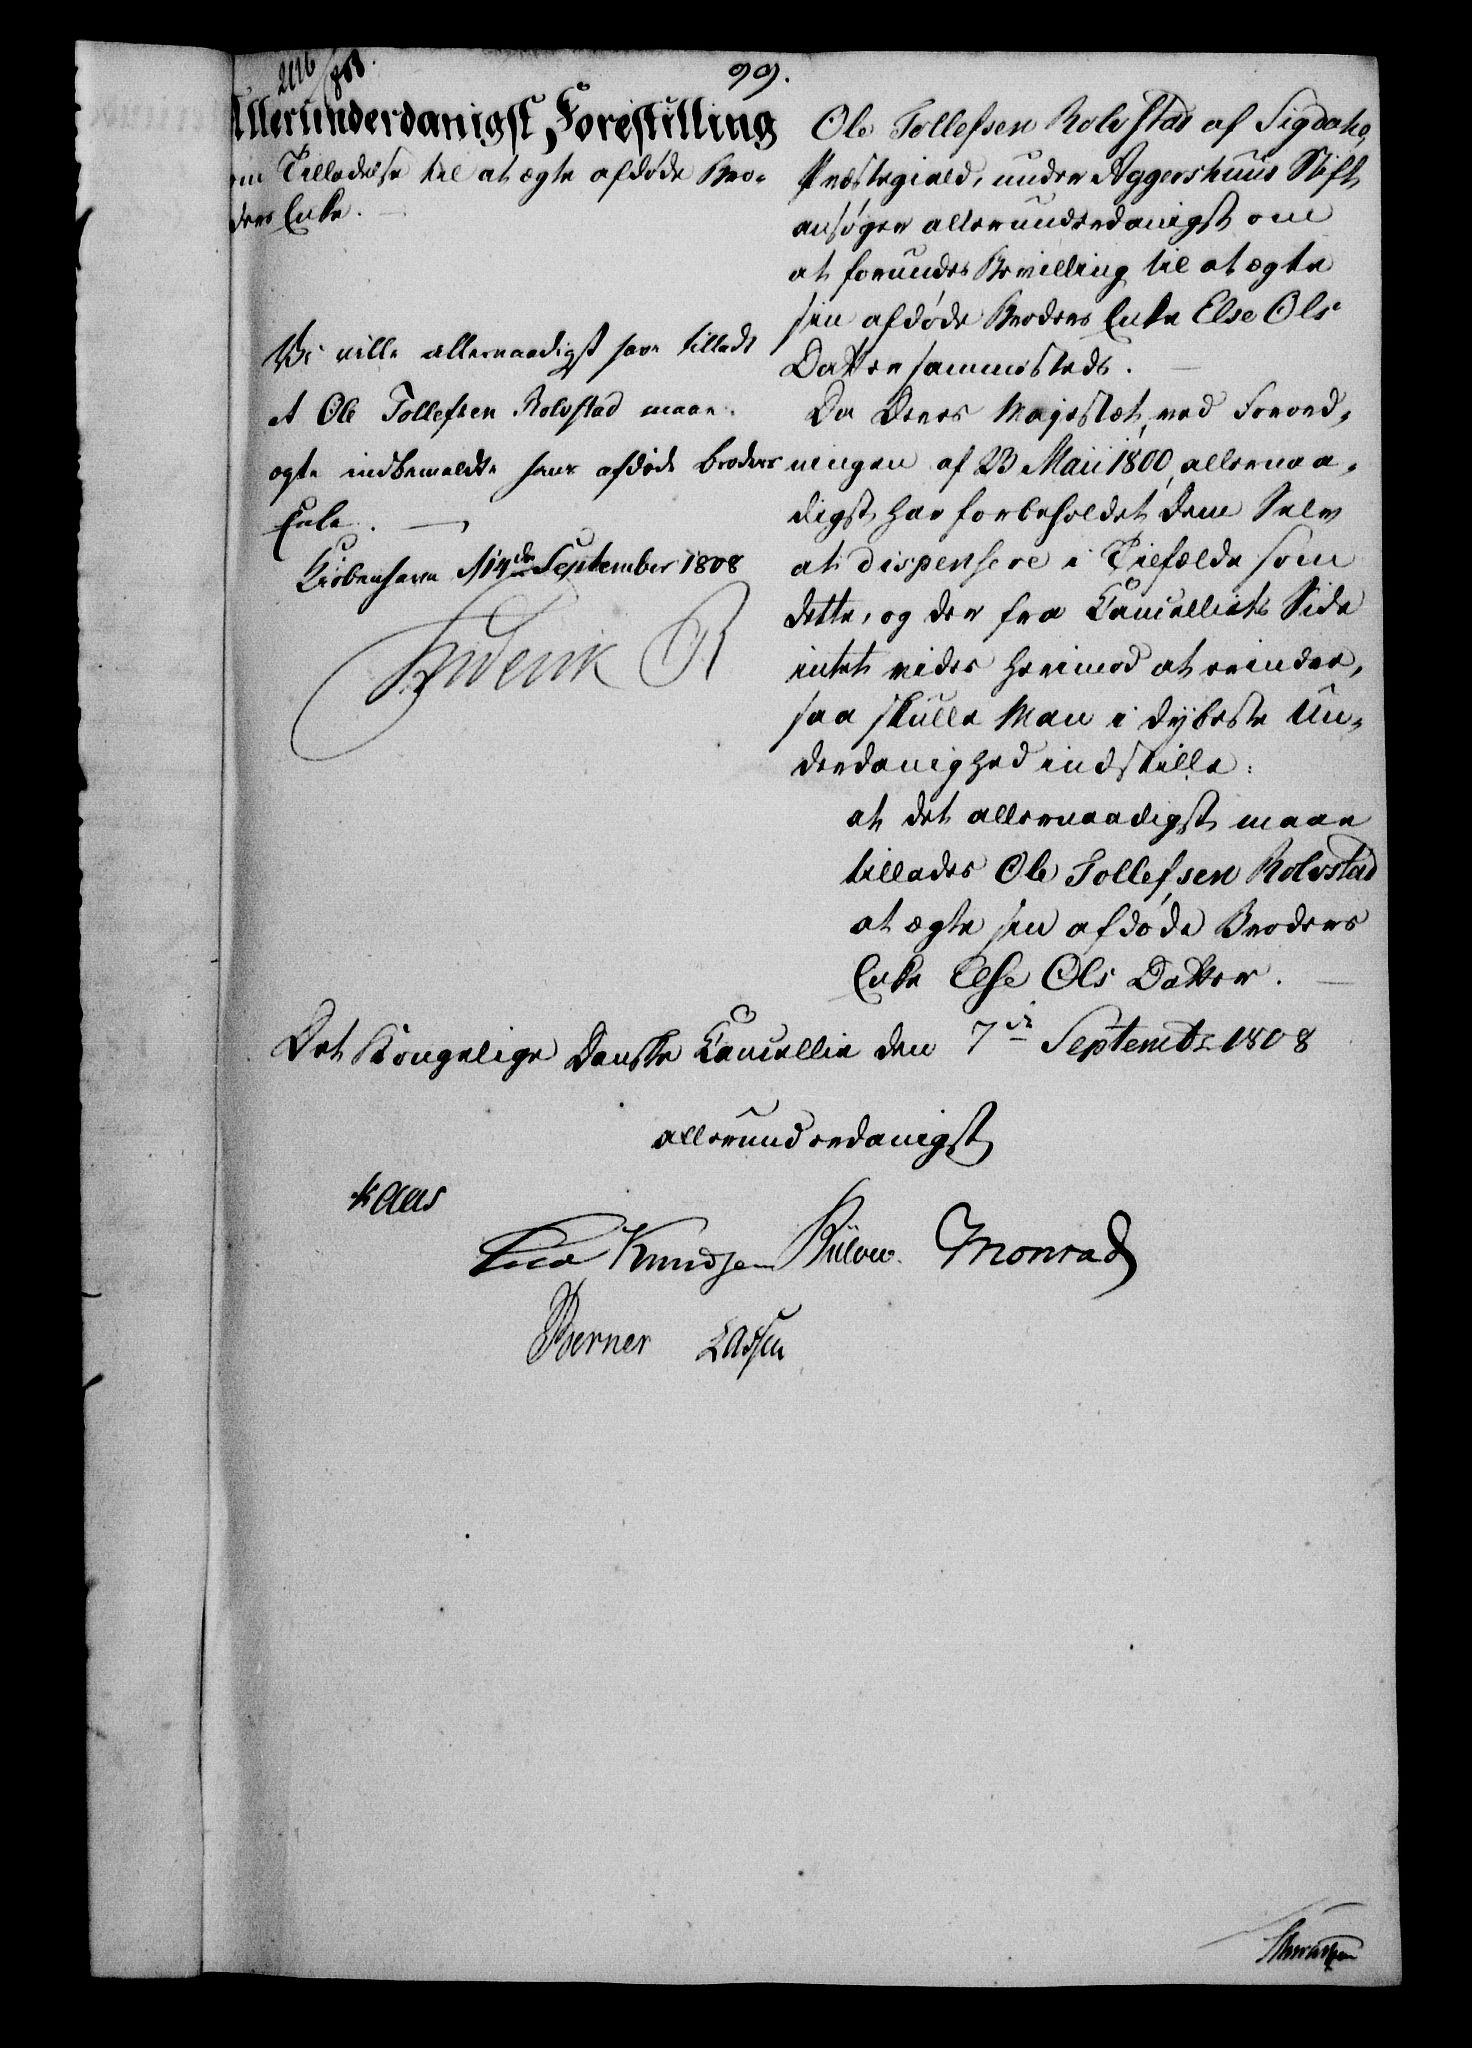 2116/808.
99.
Allerunderdanigst Forestilling
om Tilladelse til at ægte afdøde Bro-
ders Enke.
Vi ville allernaadigst have tilladt
At Ole Tollefsen Rolvstad maae
ægte indbemeldte hans afdøde broders
Enke.
Kiøbenhavn d 14de September 1808
Friderik R
Ole Tollefsen Rolvstad af Sigdahls
Præstegield, under Aggershuus Stift
ansøger allerunderdanigst om
at forundes Bevilling til at ægte
sin afdøde Broders Enke Else Ols
Datter sammesteds.
Da Deres Majestæt, ved Forord-
ningen af 23 Maii 1800, allernaa-
digst har forbeholdet Dem Selv
at dispensere i Tilfælde som
dette, og der fra Cancelliets Side
intet vides herimod at erindre,
saa skulle Man i dybeste Un-
derdanighed indstille:
at det allernaadigst maae
tillades Ole Tollefsen Rolvstad
at ægte sin afdøde Broders
Enke Else Ols Datter.
Det Kongelige Danske Cancellie den 7de Septembr 1808
allerunderdanigst
Kaas
Knudsen Bülow. Monrad
Berner Lassen